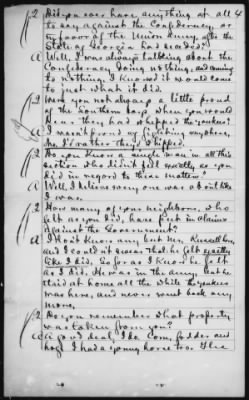 Q Did you ever have anything at all
to say against the Confederacy, or
in favor of the Union Army after the
State of Georgia had seceded?
A Well, I was always talking about the
Confederacy doing nothing, and coming
to nothing. I knowed it would come
to just what it did.
Q Were you not always a little proud
of the Southern boys when you would
hear they had whipped the yankees?
A I wasn't proud of fighting anywhere,
No, I'd rather they'd whipped.
Q Do you know a single man in all this
section who didn't feel exactly as you
did in regard to these matters?
A Well, I believe every one was about like
I was.
Q How many of your neighbors, who
felt as you did, have put in claims
against the Government?
A I don't know any but Mr. Russell
and I could not swear that he felt exactly
like I did. So far as I know he felt
as I did. He was in the army, but he
staid at home all the while the yankees
was here, and never went back any
more.
Q Do you remember what property
was taken from you?
A A good deal, I do corn, fodder and
hogs I had a young horse too.